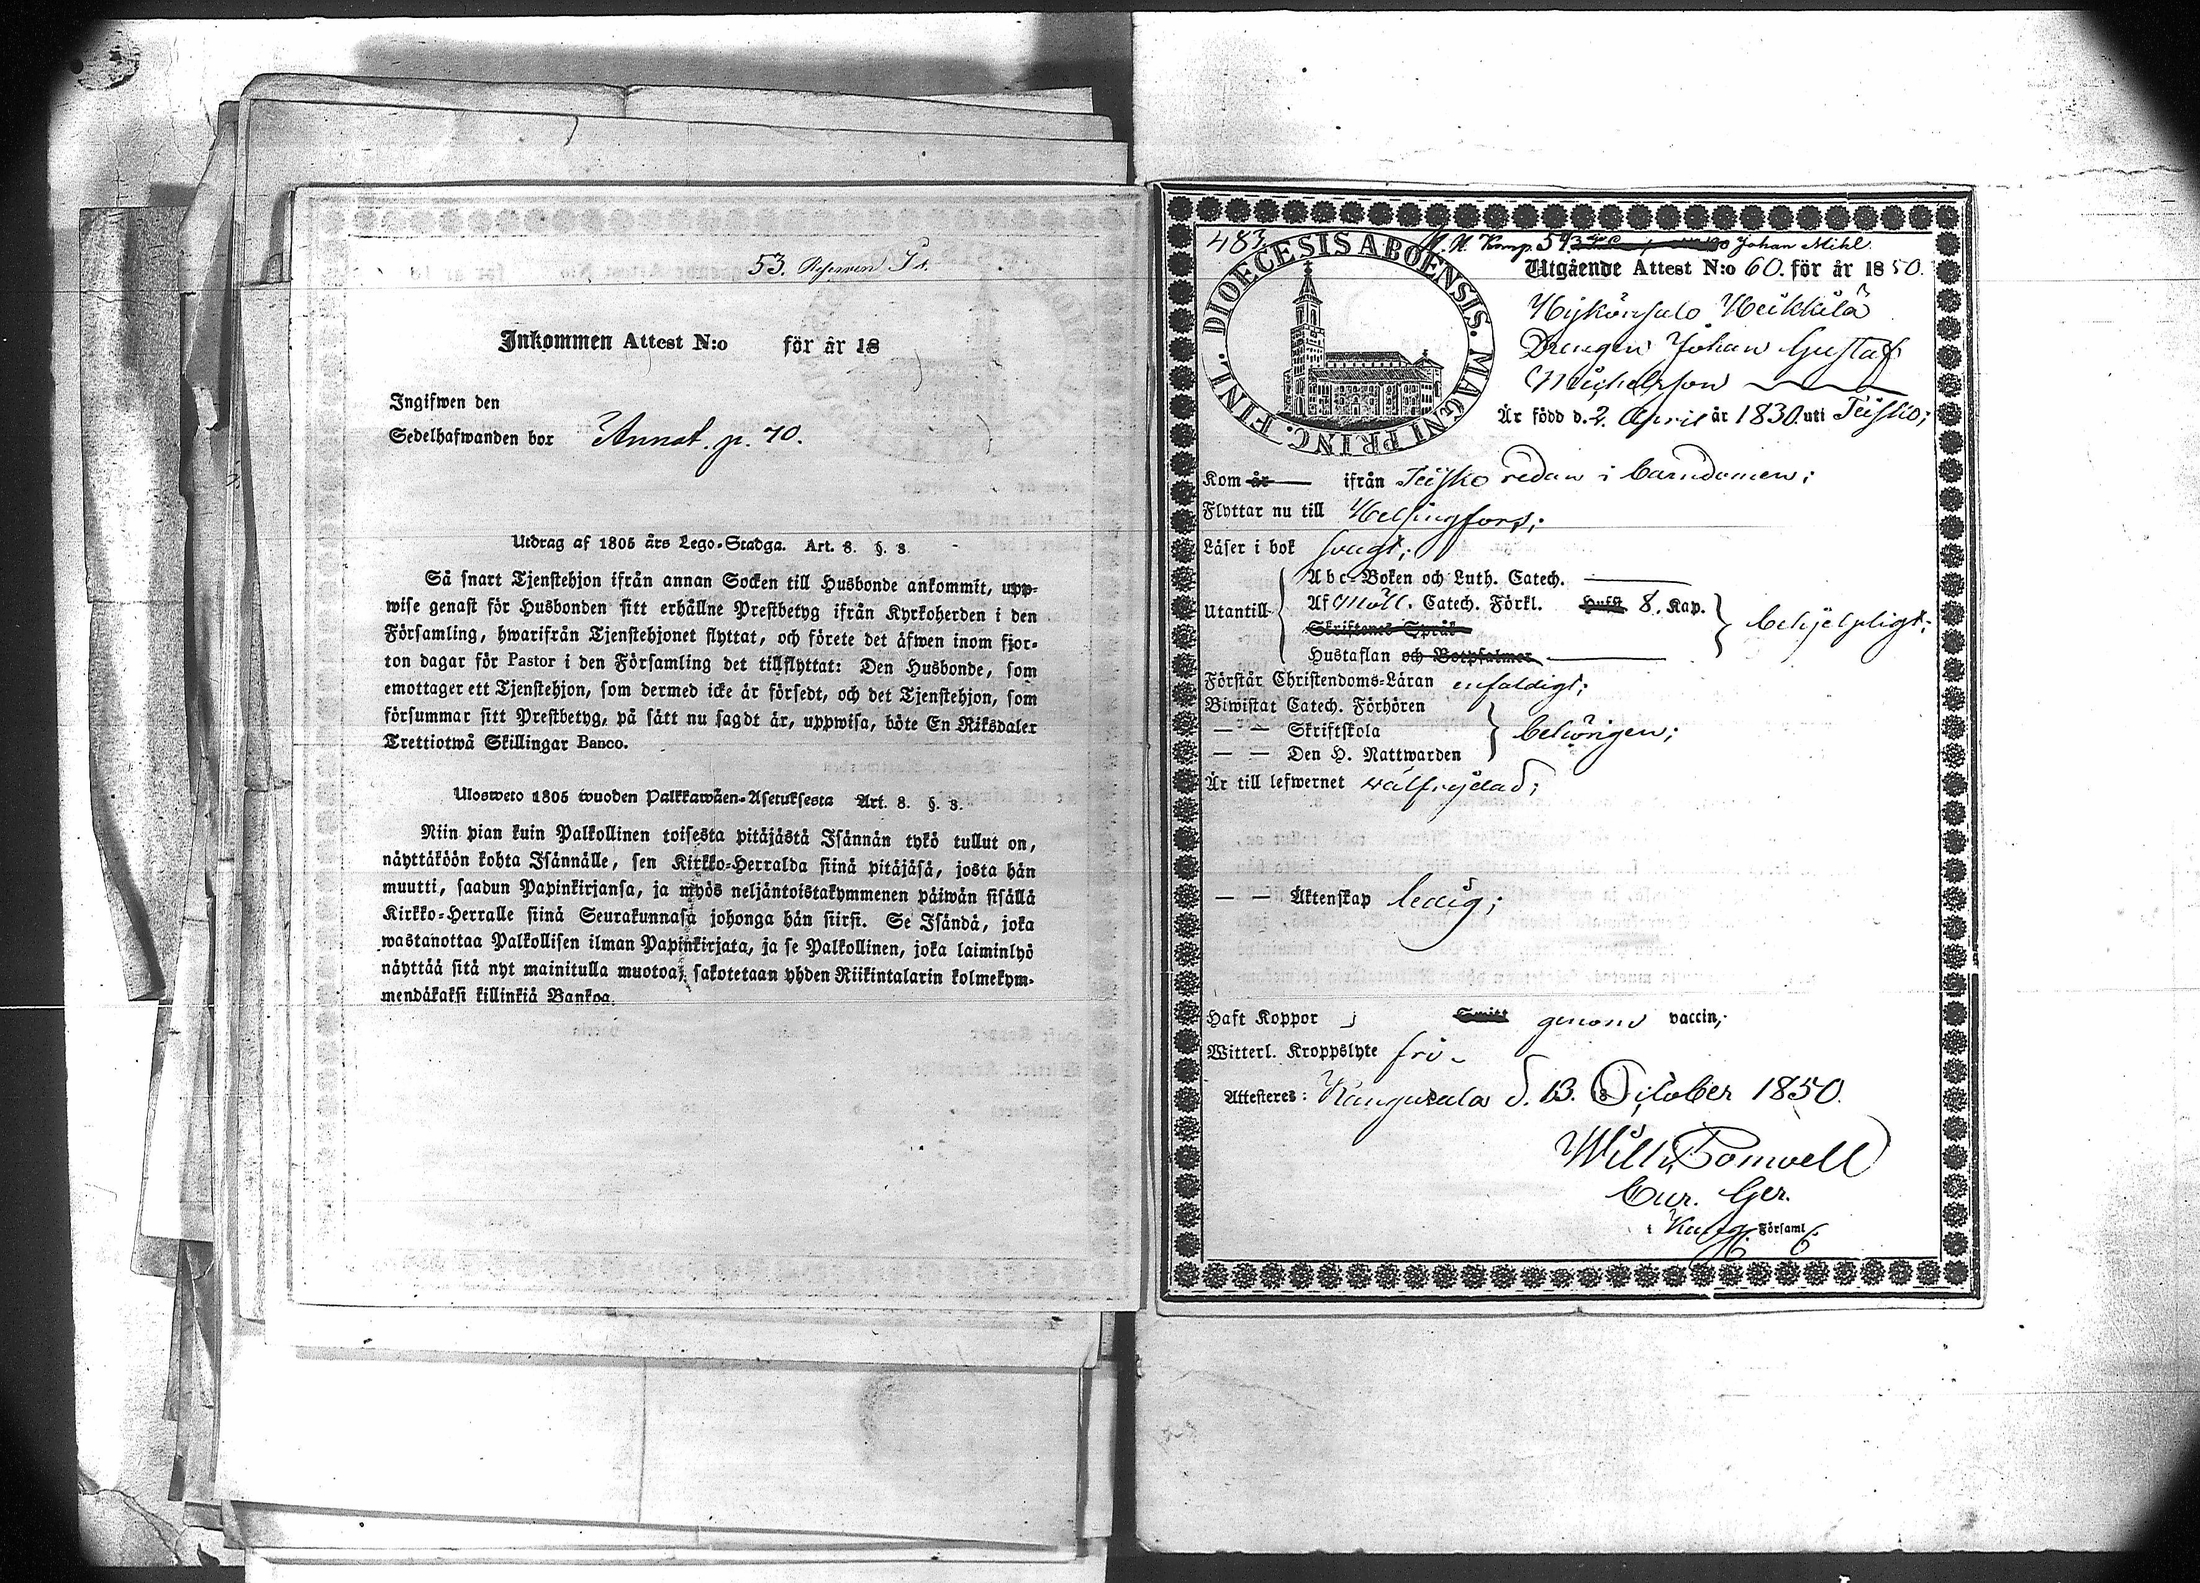 53.
Inkommen Attest N:o för år 18
Ingifwen den
Sedelhafwanden bor Annat. p. 70.
Utdrag af 1805 års Lego-Stadga. Art. 8. §. 8.
Så snart Tjenstehjon ifrån annan Socken till Husbonde ankommit, upp-
wise genast för Husbonden sitt erhållne Prestbetyg ifrån Kyrkoherden i den
Församling, hwarifrån Tjenstehjonet flyttat, och förete det äfwen inom fjor-
ton dagar för Pastor i den Församling det tillflyttat: Den Husbonde, som
emottager ett Tjenstehjon, som dermed icke är försedt, och det Tjenstehjon, som
försummar sitt Prestbetyg, på sätt nu sagdt är, uppwisa, böte En Riksdaler
Trettiotwå Skillingar Banco.
Ulosweto 1805 wuoden Palkkawäen-Asetuksesta Art. 8. §. 8.
Niin pian kuin Palkollinen toisesta pitäjästä Isännän tykö tullut on,
näyttäköön kohta Isännälle, sen Kirkko-Herralda siinä pitäjäsä, josta hän
muutti, saadun Papinkirjansa, ja myös neljäntoistakymmenen päiwän sisällä
Kirkko-Herralle siinä Seurakunnasa johonga hän siirsi. Se Isändä, joka
wastanottaa Palkollisen ilman Papinkirjata, ja se Palkollinen, joka laiminlyö
näyttää sitä nyt mainitulla muotoa, sakotetaan yhden Riikintalarin kolmekym-
mendäkaksi killinkiä Bankoa.
483. Komp. 593 Johan Mihl.
DIOECESIS ABOENSIS. MAGNI PRINC. FINL.
Utgående Attest N:o 60. för år 1850.
Heikkilä
Drengen Johan Gustaf
Michelsson
Är född d. 2. April år 1830. uti Teisko;
Kom år ifrån Teisko redan i barndomen;
Flyttar nu till Helsingfors;
Läser i bok svagt;
Utantill
Abc-Boken och Luth. Catech.
Af Möll. Catech. Förkl. 8. Kap.
Skriftenes Språk
Hustaflan och Botpsalmer
behjelpligt;
Förstår Christendoms-Läran enfaldigt;
Biwistat Catech. Förhören
— — Skriftskola
— — Den H. Nattwarden
behörigen;
Är till lefwernet wälfrejdad;
— — Äktenskap ledig;
Haft Koppor genom vaccin;
Witterl. Kroppslyte fri
Attesteres: Kangasala d. 13. October 1850.
Wilh. Bomwell
Cur. Ger.
i Kang. Församl.